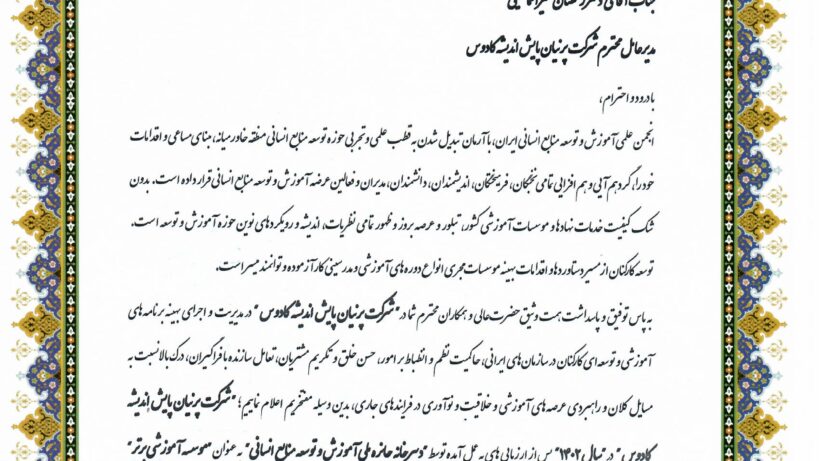 جناب آقای
مدیرعامل محترم شرکت پرنیان پایش اندیشه کادوس
با درود و احترام،
انجمن علمی آموزش و توسعه منابع انسانی ایران، با آرمان تبدیل شدن به قطب علمی و تجربی حوزه توسعه منابع انسانی منطقه خاورمیانه، مبنای مساعی و اقدامات
خود را، گردهم آیی و هم افزایی تمامی نخبگان، فریختگان، اندیشمندان، دانشمندان، مدیران و فعالین عرضه آموزش و توسعه منابع انسانی قرار داده است. بدون
شک کیفیت خدمات نهادها و موسسات آموزشی کشور، تبلور و عرصه بروز و ظهور تمامی نظریات، اندیشه و رویکردهای نوین حوزه آموزش و توسعه است.
توسعه کارکنان از مسیر دستاوردها و اقدامات بهینه موسسات مجری انواع دوره های آموزشی و مدرسینی کارآزموده و توانمند میسر است.
به پاس توفیق و پاسداشت همت وثیق حضرت عالی و همکاران محترم شما در "شرکت پرنیان پایش اندیشه کادوس" در مدیریت و اجرای بهینه برنامه های
آموزشی و توسعه ای کارکنان در سازمان های ایرانی، حاکمیت نظم و انظباط بر امور، حسن خلق و تکریم مشتریان، تعامل سازنده با فراگیران، درک بالا نسبت به
مسایل کلان و راهبردی عرصه های آموزشی و خلاقیت و نوآوری در فرایندهای جاری، بدین وسیله مفتخریم اعلام نماییم؛ "شرکت پرنیان پایش اندیشه
کادوس" در "سال ۱۴۰۲" پس از ارزیابی های به عمل آمده توسط "دبیرخانه جایزه ملی آموزش و توسعه منابع انسانی" به عنوان "موسسه آموزشی برتر"